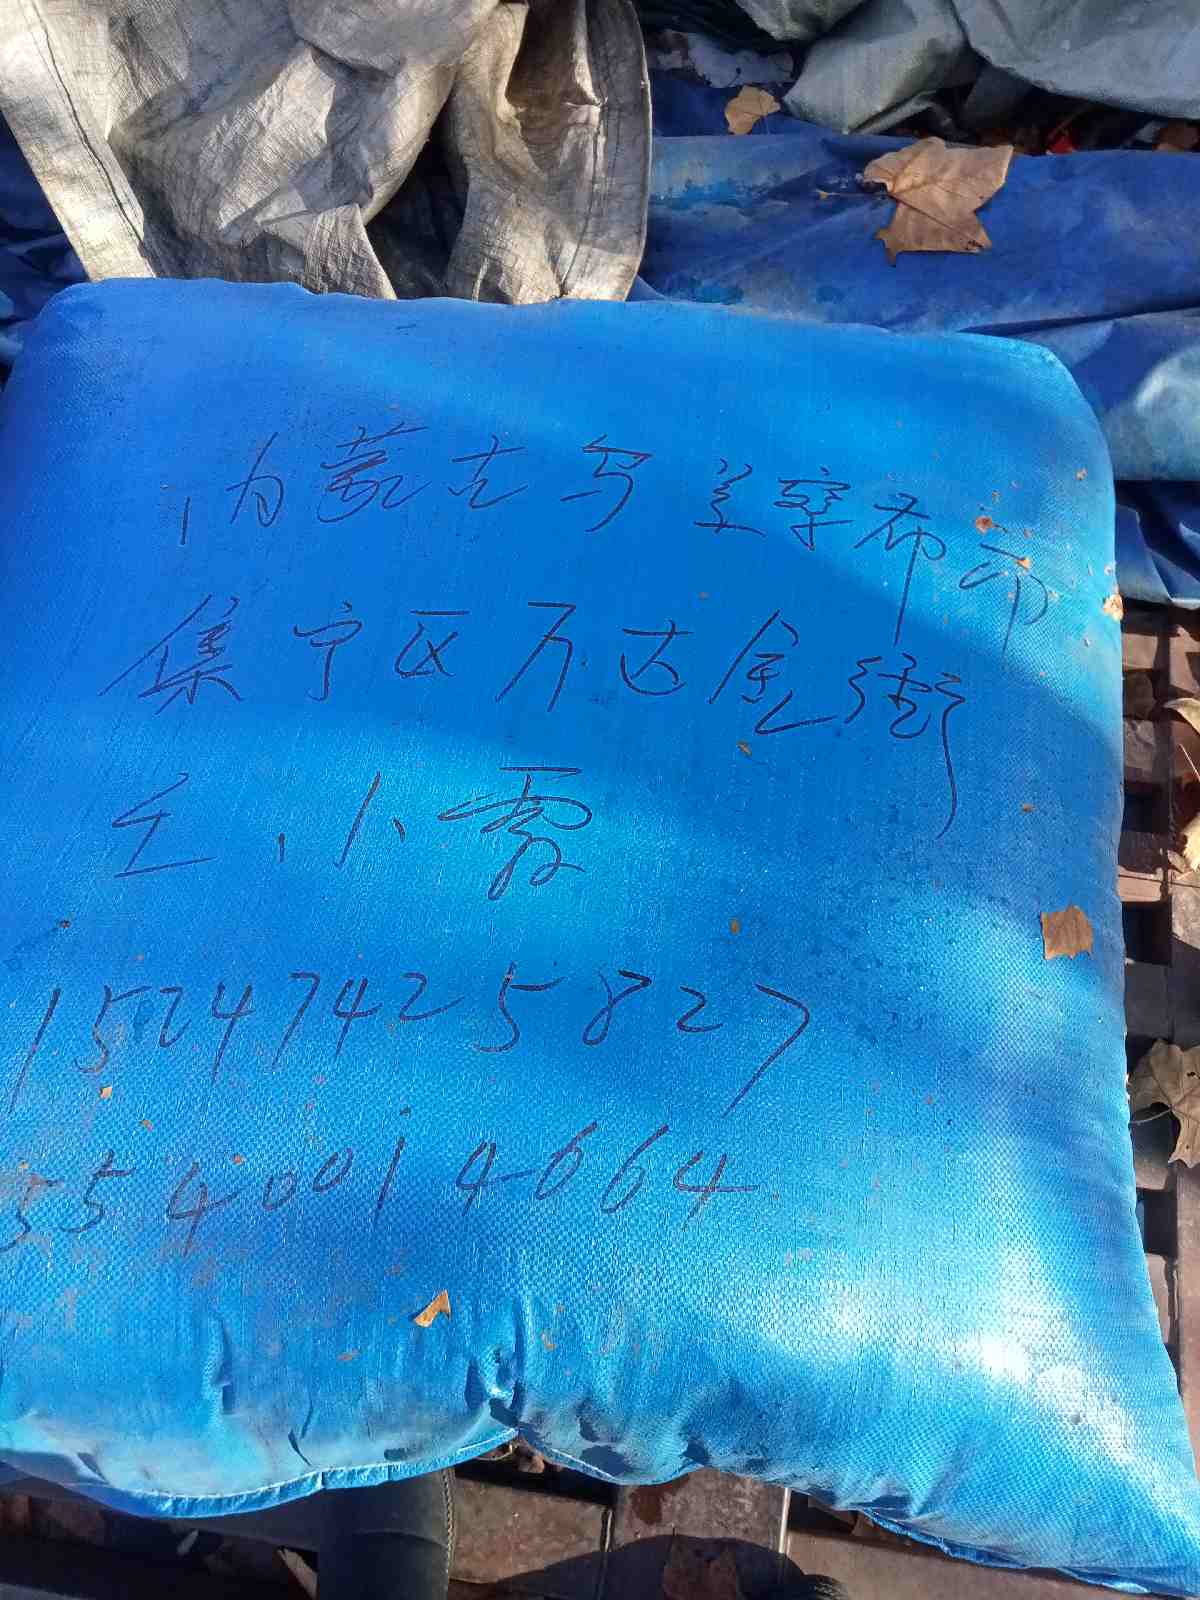 内蒙古乌兰察布市
集宁区万达金街
王小霞
15247425827
5540014664